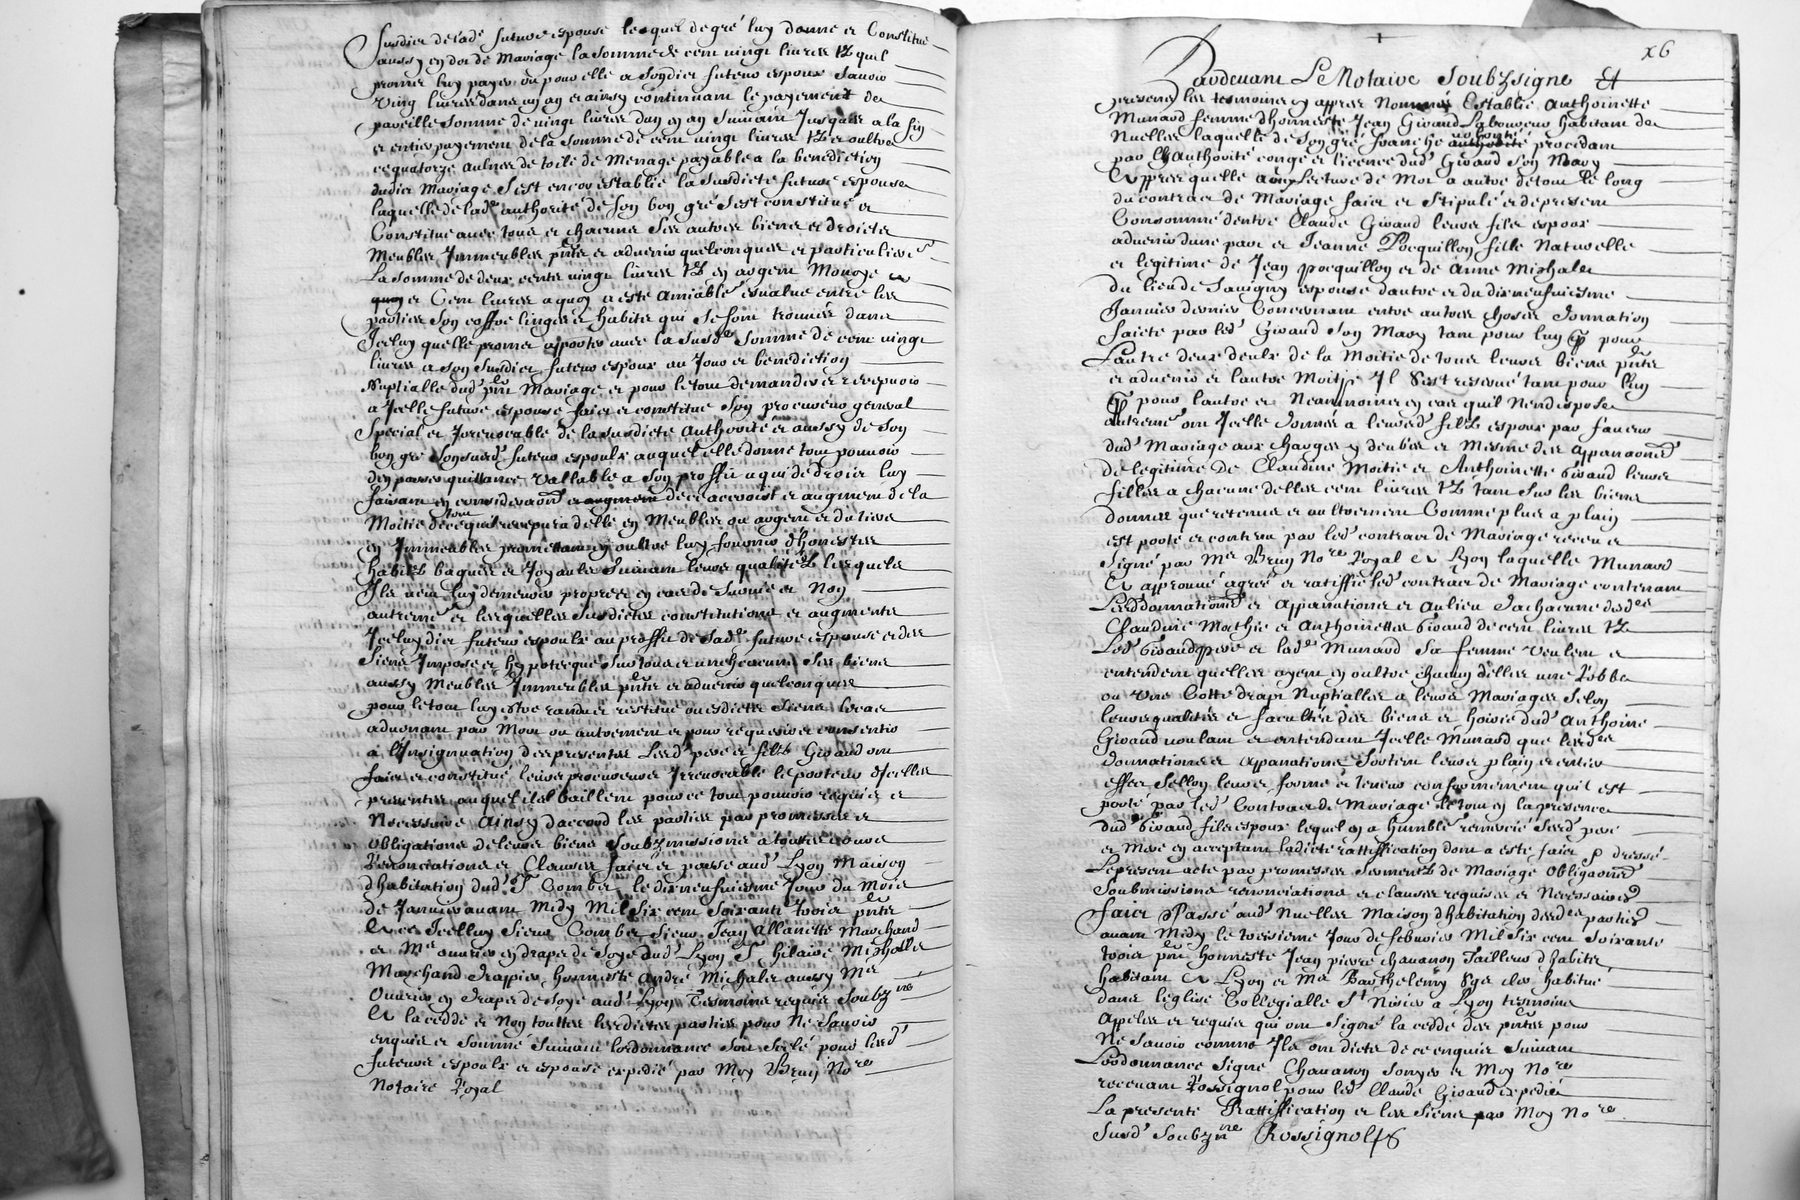 Susdict de lade future espouse lesquel de gré luy donne et Constitue
aussy en dot de Mariage la somme de cent vingt livres tz quil
promet luy payer ou pour elle a sondict futeur espoux Savoir
vingt livres dans un an et ainsy continuant le payement de
pareille somme de vingt livres dun en an suivant Jusques a la fin
et entier payement de la somme de cent vingt livres tz et oultre
ce quatorze aulnes de toile de Menage payable a la benediction
dudict Mariage S'est encor establie la susdicte future espouse
laquelle de lade authorité de son bon gré s'est constitué et
Constitue avec tous et chacuns ses autres biens et droicts
Meubles Immeubles pnts et advenir quelconques et particulieret
La somme de deux cents vingt livres tz en argent Monoye
et Cent livres a quoy a esté amiablet esvalué entre les
parties Son coffre linges et habits qui se sont trouvés dans
Iceluy quelle promet apporter avec la susde somme de cent vingt
livres a son susdict futeur espoux au Jour et benediction
Nuptialle dud pnt Mariage et pour le tout demander et recepvoir
a Icelle future espouse faict et constitue Son procureur general
Special et Irrevocable de la susdicte authorité et aussy de Son
bon gré Sonsusd futeur espoulx auquel elle donne tout pouvoir
den passer quittance vallable a son proffit a qui de droict luy
faisant en consideraon de ce accroist et augment de la
Moitié de tout ce quil recepvra delle en Meubles ou argent et du tiers
en Immeubles promettant en oultre luy fournir d'honestes
habits bagues et Joyaulx Suivant leurs qualitéz lesquels
Ils veut luy demeurer propres en cas de survie et Non
autremt et lesquelles susdictes constitutions et augments
Iceluy dict futeur espoulx au proffit de sade future espouse et des
siens Impose et hypotecque sur tous et un chacuns ses biens
aussy Meubles Immeubles pnts et advenir quelconques
pour le tout luy estre randu et restitué ou esdicts siens le cas
advenant par Mort ou autrement et pour requerir et consentir
a l'Insignuation des presentes Lesd pere et fils Giraud ont
faict et constitué leurs procureurs Irrevocable le porteur d'Icelles
presentes auquel ilz baillent pour ce tout pouvoir requis et
Necessaire Ainsy daccord les parties par promesses et
obligations de leurs biens soubzmissions a toutes cours
Renonciations et Clauses faict et passé aud Lyon Maison
d'habitation dud St Combet le dix neufuiesme Jour du Mois
de Janvier avant Midy Mil Six cent soixante trois pnts
A ce Icelluy sieur Combet sieur Jean Allanette Marchand
et Me ouvrier en draps de soye dud Lyon St hilaire Michalle
Marchand drappier honneste André Michalet aussy Me
Ouvrier en draps de soye aud Lyon Tesmoins requis soubznés
A la cedde et Non touttes lesdictes parties pour Ne Savoir
enquis et sommé suivant lordonnance Soit scelé pour lesd
futeurs espoulx et espouse expedié par Moy Bruij Nore
Notaire Royal
x6
Pardevant Le Notaire Soubzsigné Et
presents les tesmoins en appres Nommés Establie Anthoinette
Munard femme d'honneste Jean Giraud Laboureur habitant de
Nuelles laquelle de Son gré franche volonté procedant
par L'authorité congé et licence dud Giraud Son Mary
Appres quelle a ouy lecture de Mot a autre de tout le long
du contract de Mariage faict et stipulé et depresent
Consommé dentre Claude Giraud leurs fils espoux
advenir dune part et Jeanne Pocquillon fille Naturelle
et legitime de Jean pocquillon et de Anne Michalet
du lieu de Savigny espouse dautre et du dixneufuiesme
Janvier dernier Concernant entre autres choses Donnation
faicte par led Giraud Son Mary tant pour luy q pour
Lautre deux deulx de la Moitié de tous leurs biens pnts
et advenir et lautre Moitie Il s'est reservé tant pour luy
q pour lautre et Neantmoins en cas quil Nen dispose
autremt ont Icelle donnés a leursd filz espoux par faveur
dud Mariage aux charges y deubes et Mesme des appanaonnt
de legitime de Claudine Moitié et Anthoinette Giraud leurs
filles a chacune delles cent livres tz tant sur les biens
donnés que retenus et aultrement Comme plus a plain
est porté et contenu par led contract de Mariage receu et
signé par Me Bruij Nore Royal A Lyon laquelle Munard
A approuvé agreé et ratiffié led contract de Mariage contenant
Lesd donnations et appanations et aulieu d'achacune desdes
Claudine Mathie et Anthoinette Giraud de cent livres tz
Led Giraud pere et lade Munard Sa femme veulent et
entendent quelles ayent en oultre chacun d'elles une Robbe
ou Une Cotte drap Nuptialles a leurs Mariages selon
leurs qualités et facultés des biens et hoirie dud Anthoine
Giraud voulant et entendant Icelle Munard que lesdes
donnations et appanations sortent leurs plain et entier
effect Sellon leurs forme et teneur conformement quil est
porté par led Contract de Mariage le tout en la presence
dud Giraud fils espoux lequel en a humblet remercié sesd pere
et Mere en acceptant ladicte rattiffication dont a esté faict & dressé
Le present acte par promesses serments de Mariage obligaons
Soubmissions renonciations et clauses requises et Necessaires
faict et Passé aud Nuelles Maison d'habitation desdes parties
avant Midy le troisiesme Jour de febvrier Mil six cent soixante
trois pnt honneste Jean pierre chavanon Tailleur d'habits
habitant A Lyon et Me Barthelemy habitué
dans l'eglise Collegialle St Nisier a Lyon tesmoins
Appelés et requis qui ont signé la cedde des pntes pour
Ne Savoir comme Ils ont dicts de ce enquis suivant
Lordonnance signé Chavanon et Moy Nore
recevant Rossignol pour led Claude Giraud expedié
La presente Rattiffication et les siens par Moy Nore
susd soubzne Rossignol